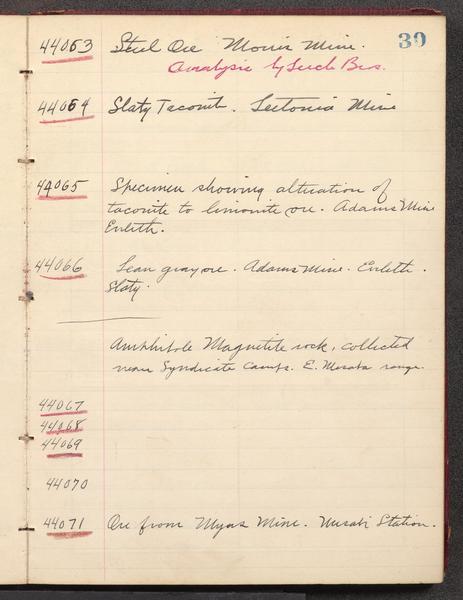 39
44063 Steel Ore Morris Mine.
Analysis by Lerch Bros.
44064 Slaty Taconite. Leetonia Mine
44065 Specimen showing alteration of
taconite to limonite ore. Adams Mine
Eveleth.
44066 Lean gray ore. Adams Mine. Eveleth.
Slaty.
Amphibole Magnetite rock, collected
near Syndicate Camps. E. Mesaba range.
44067
44068
44069
44070
44071 Ore from Myers Mine. Mesabi Station.